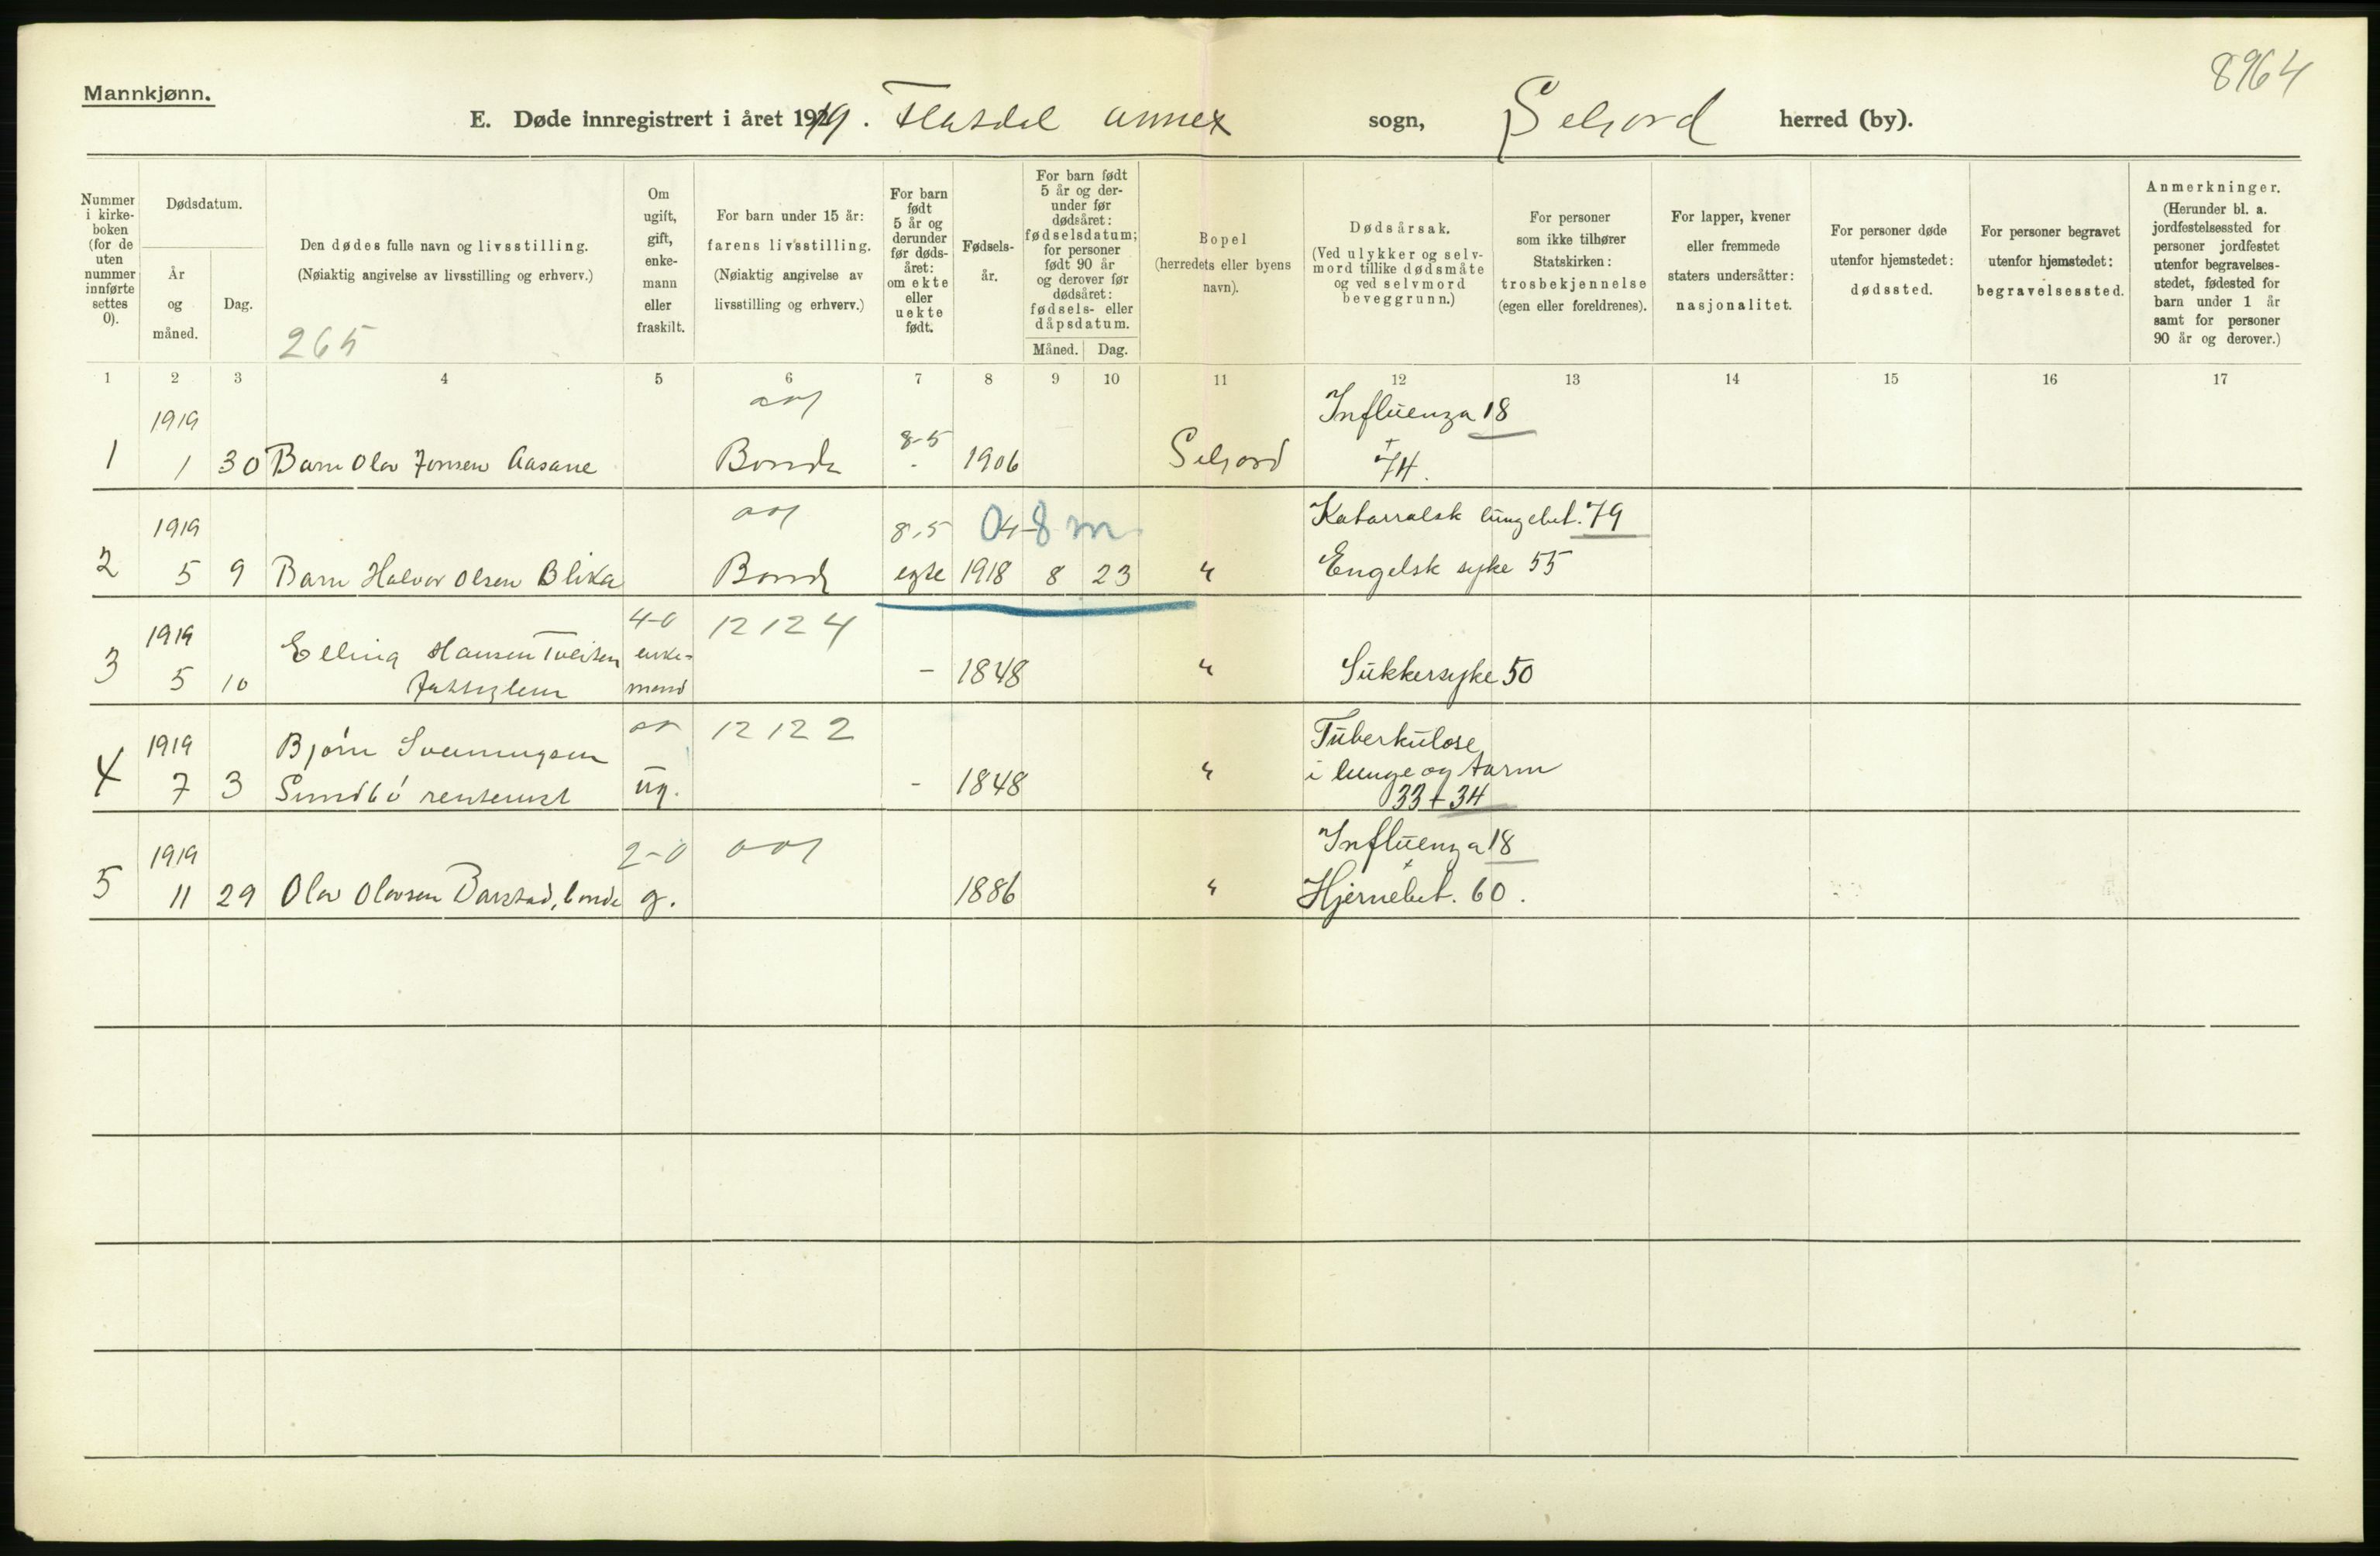 8964
Mannkjønn.
E. Døde innregistrert i året 1919. Flatdal annex sogn, Seljord herred (by).
Nummer i kirke-boken (for de uten nummer innførte settes 0).
Dødsdatum.
År og måned.
Dag.
Den dødes fulle navn og livsstilling.
(Nøiaktig angivelse av livsstilling og erhverv.)
265
Om ugift, gift, enke-mann eller fraskilt.
For barn under 15 år: farens livsstilling.
(Nøiaktig angivelse av livsstilling og erhverv.)
For barn født 5 år og derunder før døds-året: om ekte eller uekte født.
Fødsels-år.
For barn født 5 år og der-under før dødsåret: fødselsdatum; for personer født 90 år og derover før dødsåret: fødsels- eller dåpsdatum.
Måned. Dag.
Bopel
(herredets eller byens navn).
Dødsårsak.
(Ved ulykker og selv-mord tillike dødsmåte og ved selvmord beveggrunn.)
For personer som ikke tilhører Statskirken: trosbekjennelse (egen eller foreldrenes).
For lapper, kvener eller fremmede staters undersåtter: nasjonalitet.
For personer døde utenfor hjemstedet: dødssted.
For personer begravet utenfor hjemstedet: begravelsessted.
Anmerkninger.
(Herunder bl. a. jordfestelsessted for personer jordfestet utenfor begravelses-stedet, fødested for barn under 1 år samt for personer 90 år og derover.)
1 2 3 4 5 6 7 8 9 10 11 12 13 14 15 16 17
1919 Influenza 18
8-5
1 1 30 Barn Olav Jonsen Aasane Bonde - 1906 Seljord + 74.
1919 8.5 04-8 m Katarralsk lungebet. 79
2 5 9 Barn Halvor Olsen Blika Bonde egte 1918 8 23 " Engelsk syke 55
1919 4-0 12124
3 Elling Hansen Tveiten enke- - 1848 " Sukkersyke 50
5 10 mand
1919 Bjørn Sveinungsen 12122 Tuberkulose
4 7 3 Sundbø rentenist ug. - 1848 " i lunge og tarm
33 + 34
1919 2-0 Influenza 18
+
5 11 29 Olav Olavsen Barstad, bonde g. 1886 " Hjernebet. 60.